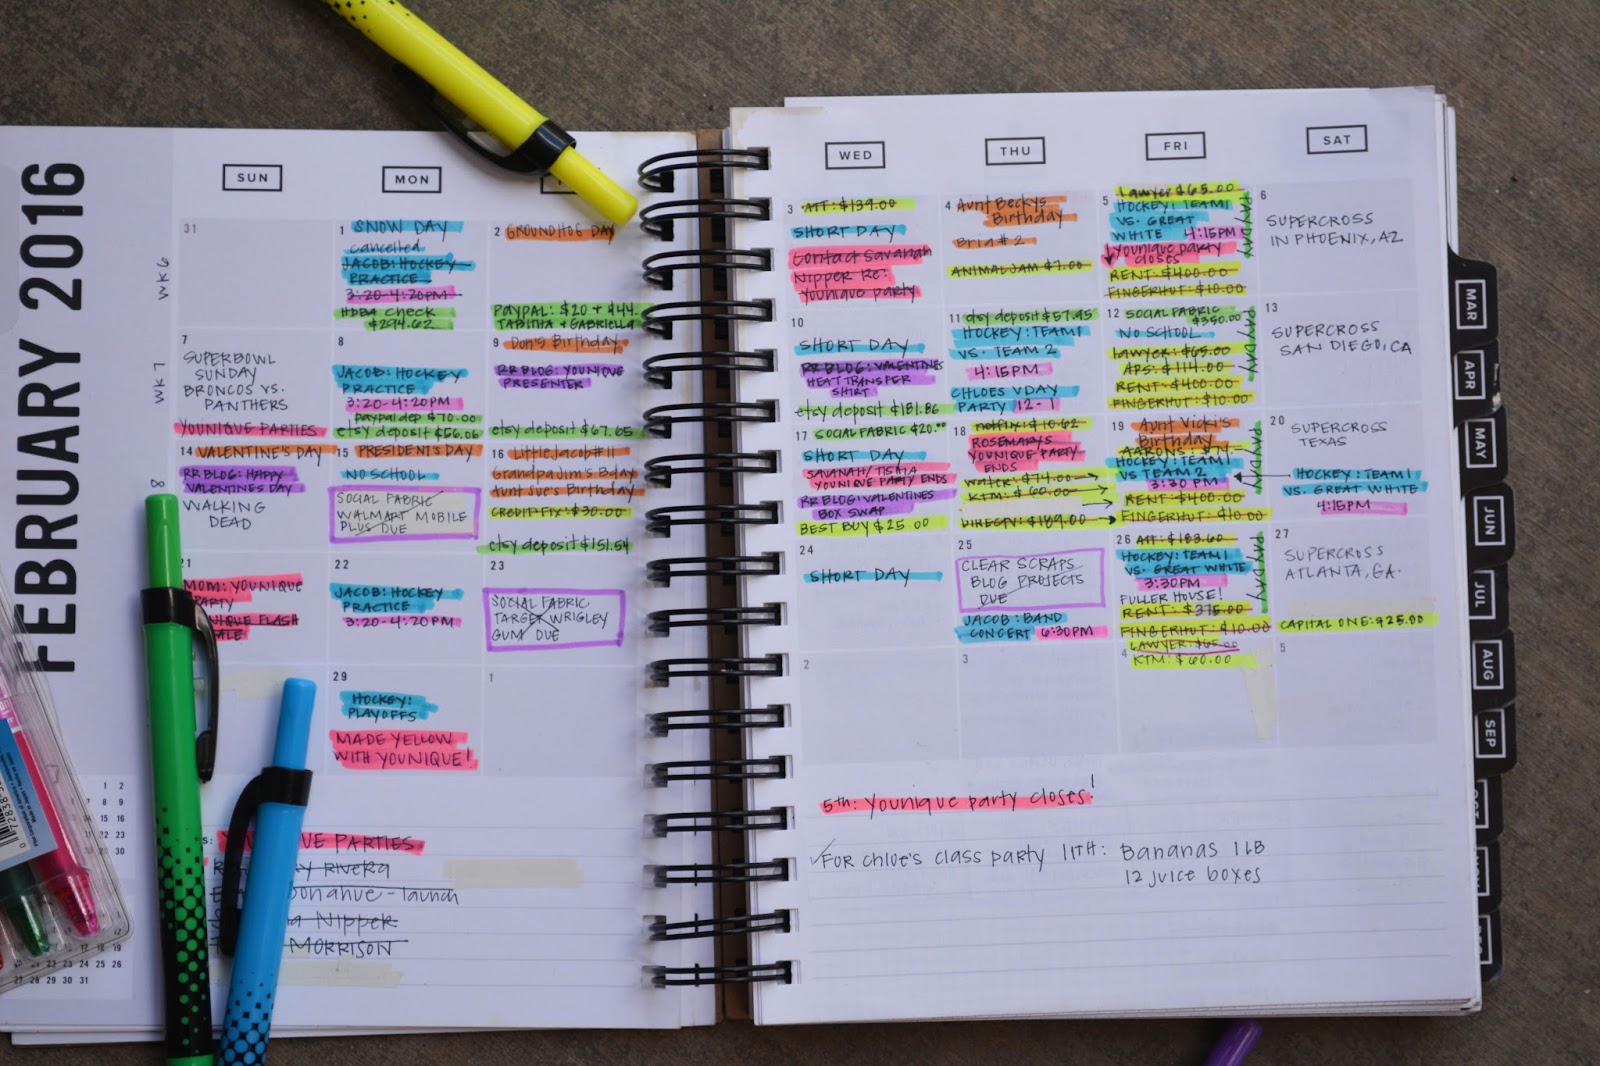 FEBRUARY 2016
SUN
MON
WK 6
31
1 SNOW DAY
cancelled
JACOB: HOCKEY
PRACTICE
3:20-4:20PM
HDBA check
$294.62
2 GROUNDHOG DAY
PAYPAL: $20 + $44
TABITHA + GABRIELLA
WK 7
7
SUPERBOWL
SUNDAY
BRONCOS VS.
PANTHERS
YOUNIQUE PARTIES
8
JACOB: HOCKEY
PRACTICE
3:20-4:20PM
paypal dep $70.00
etsy deposit $56.06
9 Don's Birthday
RR BLOG: YOUNIQUE
PRESENTER
etsy deposit $67.65
8
14 VALENTINE'S DAY
RR BLOG: HAPPY
VALENTINES DAY
WALKING
DEAD
15 PRESIDENTS DAY
NO SCHOOL
SOCIAL FABRIC
WALMART MOBILE
PLUS DUE
16 Little Jacob #11
Grandpa Jim's B-day
Aunt Sue's Birthday
CREDIT FIX: $30.00
etsy deposit $151.54
21
MOM: YOUNIQUE
PARTY
FLASH
22
JACOB: HOCKEY
PRACTICE
3:20-4:20PM
23
SOCIAL FABRIC
TARGET WRIGLEY
GUM DUE
29
HOCKEY:
PLAYOFFS
MADE YELLOW
WITH YOUNIQUE!
1
PARTIES
Rivera
Donahue - launch
Nipper
MORRISON
WED
THU
FRI
SAT
3 ATT: $139.00
SHORT DAY
Contact Savanah
Nipper Re:
Younique party
4 Aunt Becky's
Birthday
Bria # 2
ANIMAL JAM $7.00
Lawyer $65.00
5 HOCKEY: TEAM 1
VS. GREAT
WHITE 4:15PM
Younique party
closes
RENT: $400.00
FINGERHUT: $10.00
PAYDAY
6
SUPERCROSS
IN PHOENIX, AZ
10
SHORT DAY
RR BLOG: VALENTINES
HEAT TRANSFER
SHIRT
etsy deposit $181.86
11 etsy deposit $57.95
HOCKEY: TEAM 1
VS. TEAM 2
4:15PM
CHLOES VDAY
PARTY 12-1
12 SOCIAL FABRIC
$350.00
NO SCHOOL
Lawyer: $65.00
APS: $114.00
RENT: $400.00
FINGERHUT: $10.00
PAYDAY
13
SUPERCROSS
SAN DIEGO, CA
17 SOCIAL FABRIC $20.00
SHORT DAY
SAVANAH/TISHA
YOUNIQUE PARTY ENDS
RR BLOG: VALENTINES
BOX SWAP
BEST BUY $25.00
netflix: $10.62
18 ROSEMARYS
YOUNIQUE PARTY
ENDS
water: $74.00
KTM: $60.00
DIRECTV: $189.00
19 Aunt Vicki's
Birthday
AARONS: $71
HOCKEY: TEAM 1
VS TEAM 2
3:30 PM
RENT: $400.00
FINGERHUT: $10.00
PAYDAY
20 SUPERCROSS
TEXAS
HOCKEY: TEAM 1
VS. GREAT WHITE
4:15PM
24
SHORT DAY
25
CLEAR SCRAPS
BLOG PROJECTS
DUE
JACOB: BAND
CONCERT 6:30PM
26 Att: $183.60
HOCKEY: TEAM 1
VS. GREAT WHITE
3:30PM
FULLER HOUSE!
RENT: $375.00
FINGERHUT: $10.00
LAWYER: $65.00
PAYDAY
27
SUPERCROSS
ATLANTA, GA.
CAPITAL ONE: $25.00
2
3
4 KTM: $60.00
5
5th: Younique party closes!
FOR Chloe's class party 11TH: Bananas 1 LB
12 juice boxes
MAR
APR
MAY
JUN
JUL
AUG
SEP
OCT